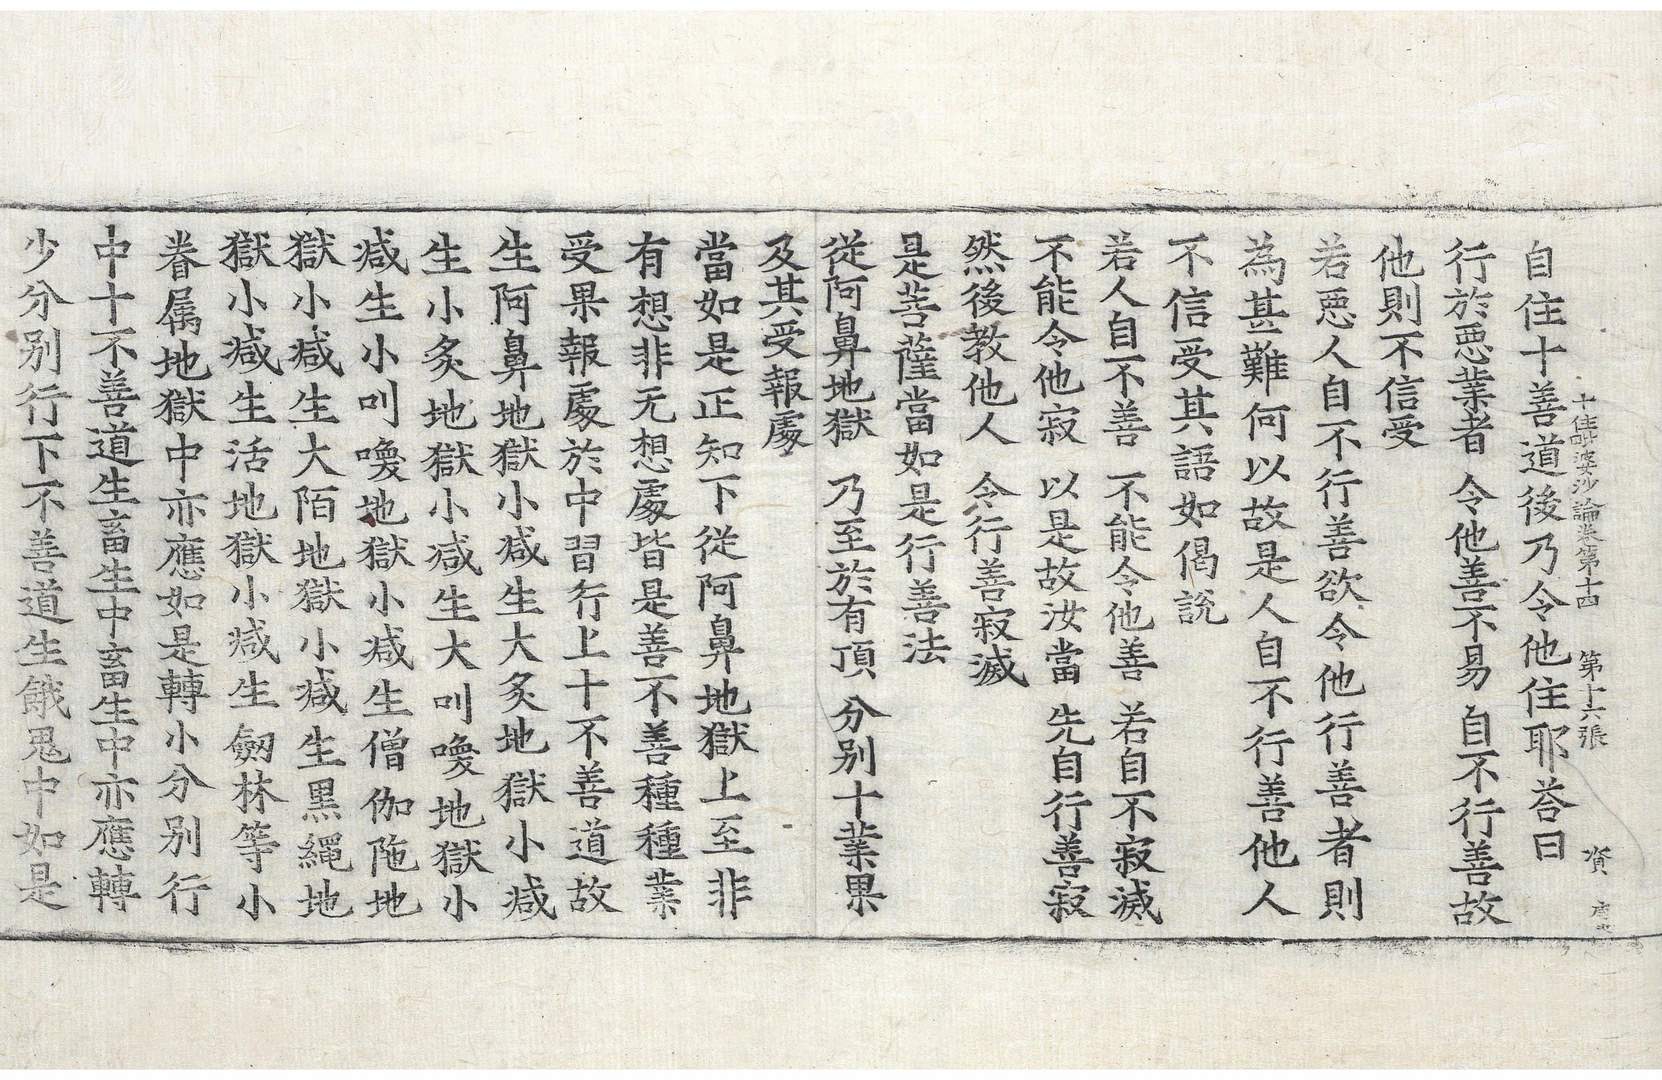 十住毗婆沙論卷第十四 第十六張 資
自住十善道後乃令他住耶荅曰
行於惡業者 令他善不易 自不行善故
他則不信受
若惡人自不行善欲令他行善者則
為甚難何以故是人自不行善他人
不信受其語如偈說
若人自不善 不能令他善 若自不寂滅
不能令他寂 以是故汝當 先自行善寂
然後教他人 令行善寂滅
是菩薩當如是行善法
從阿鼻地獄 乃至於有頂 分別十業果
及其受報處
當如是正知下從阿鼻地獄上至非
有想非无想處皆是善不善種種業
受果報處於中習行上十不善道故
生阿鼻地獄小減生大炙地獄小減
生小炙地獄小減生大叫喚地獄小
減生小叫喚地獄小減生僧伽陁地
獄小減生大陌地獄小減生黒繩地
獄小減生活地獄小減生劒林等小
眷属地獄中亦應如是轉小分別行
中十不善道生畜生中畜生中亦應轉
少分別行下不善道生餓鬼中如是